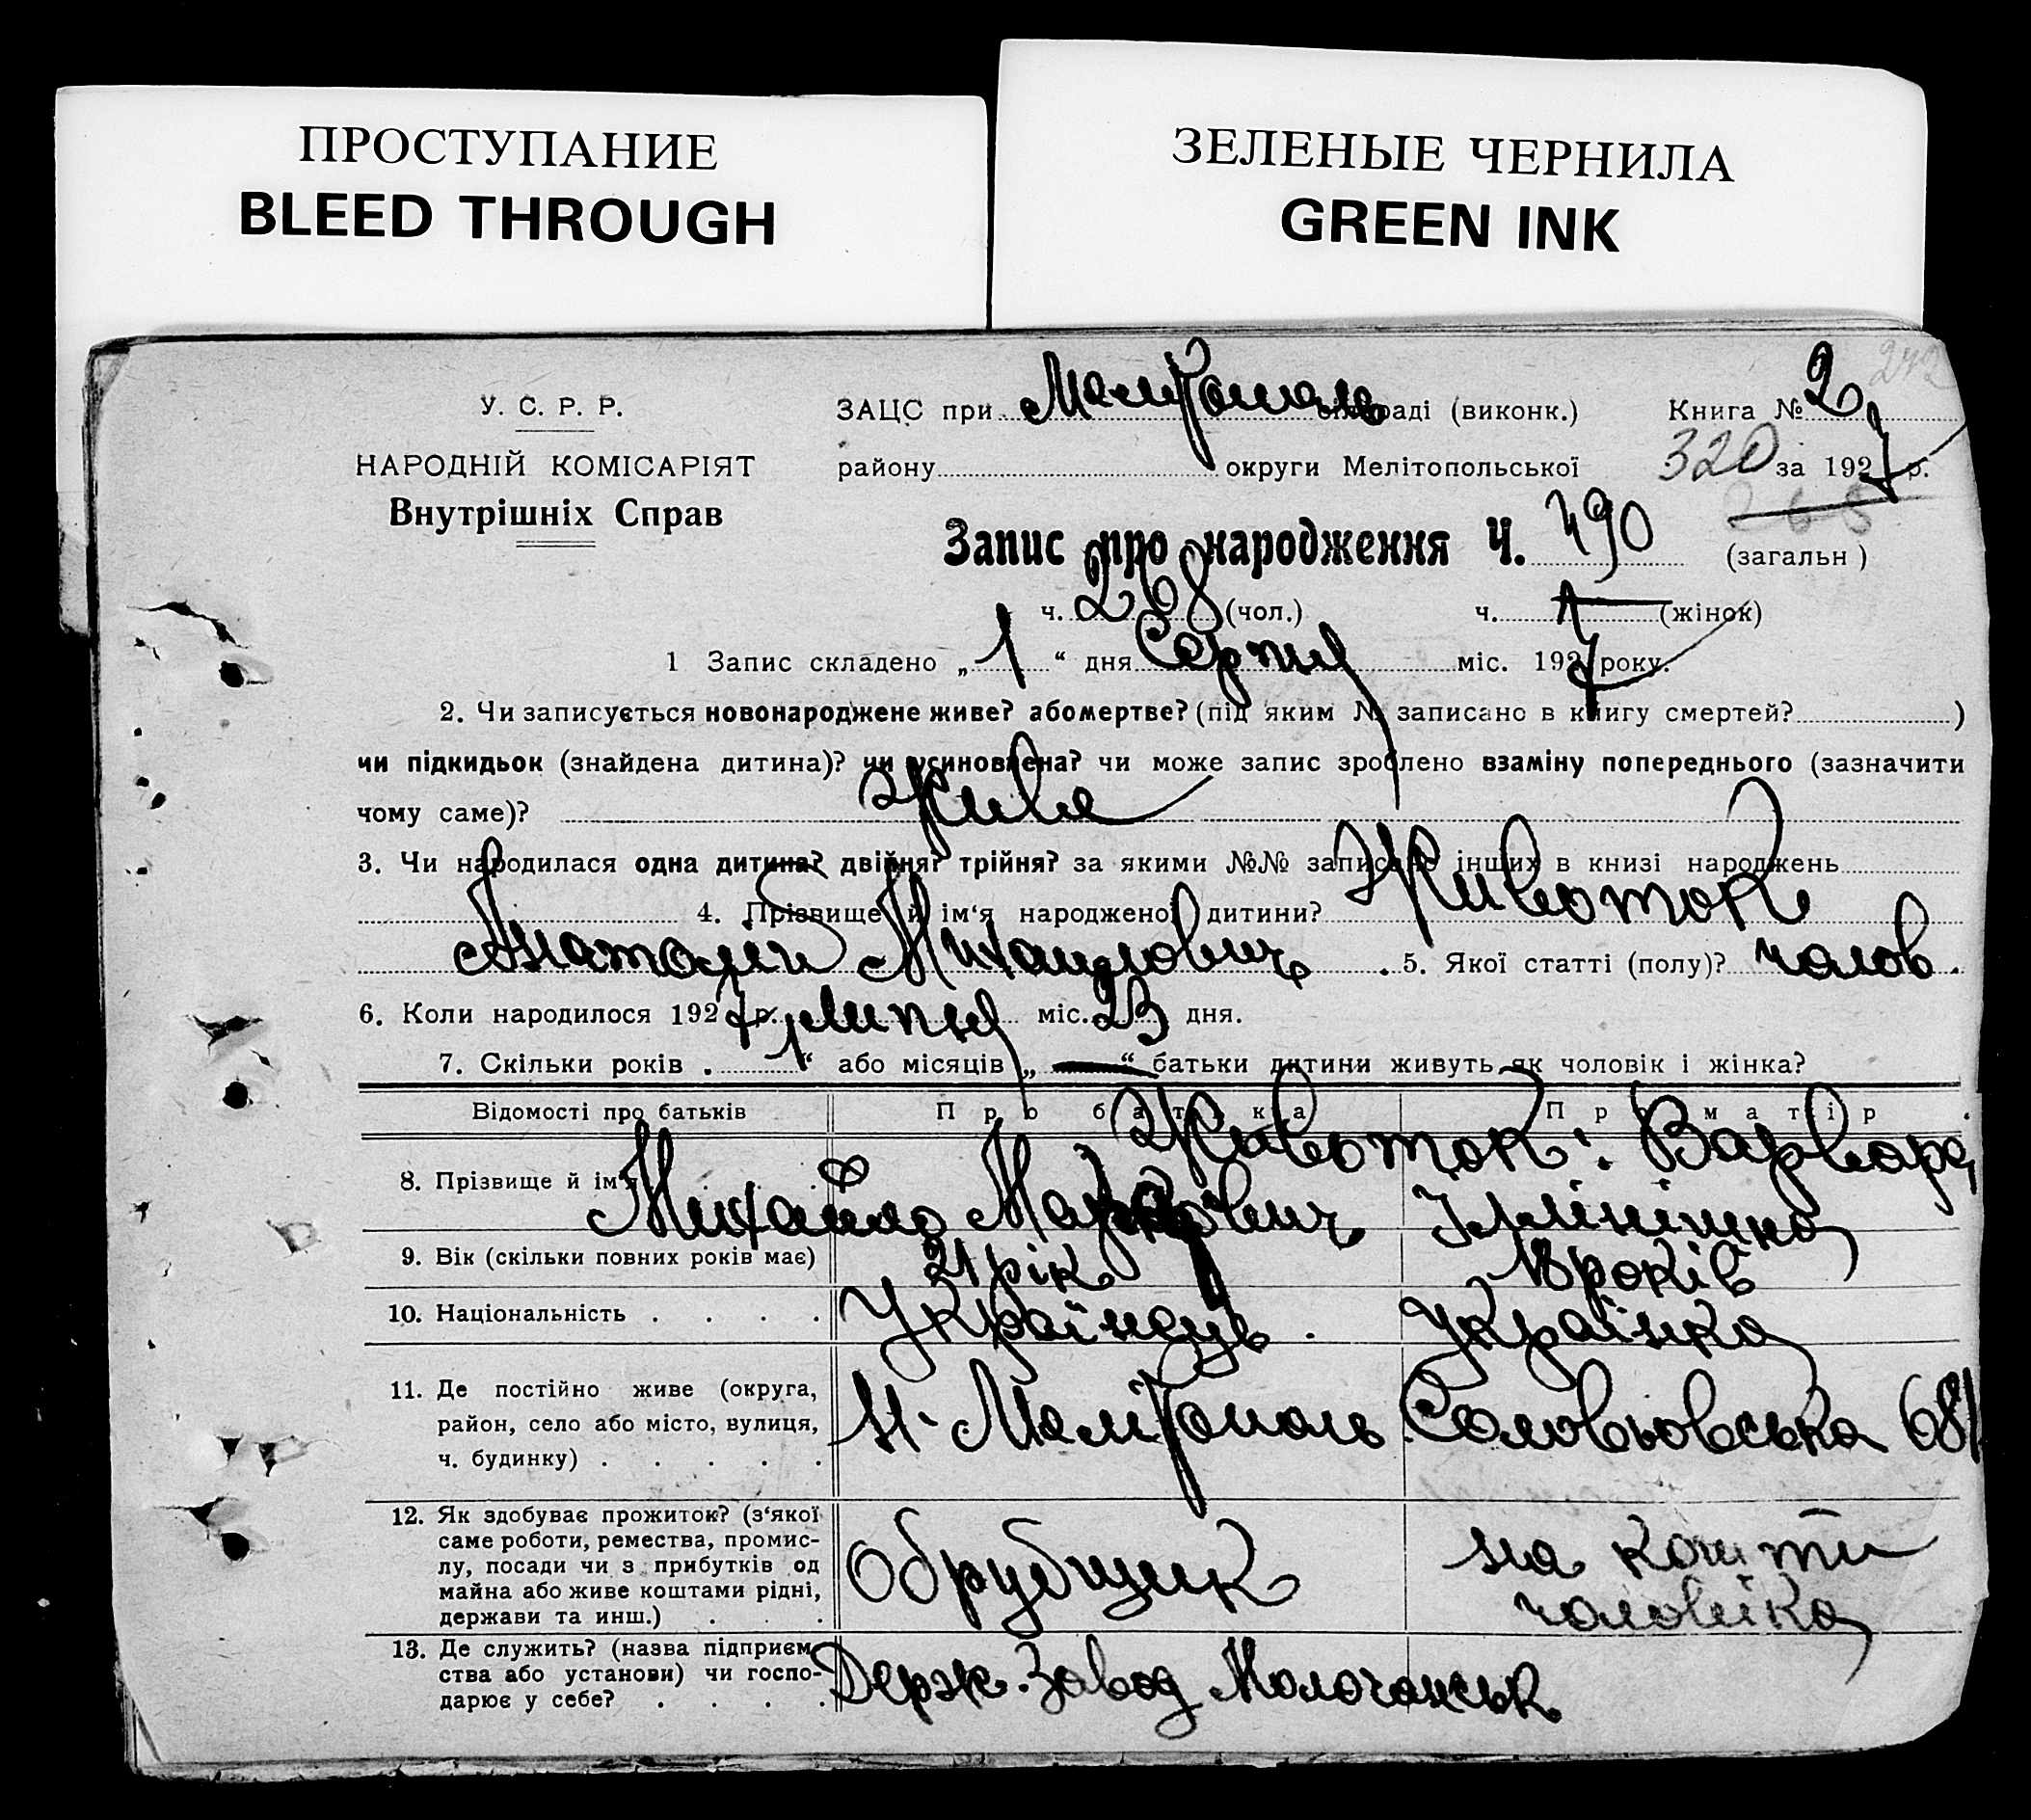 ПРОСТУПАНИЕ
BLEED THROUGH
ЗЕЛЕНЫЕ ЧЕРНИЛА
GREEN INK
242
У. С. Р. Р.
НАРОДНІЙ КОМІСАРІЯТ
Внутрішніх Справ
ЗАЦС при Мелітополь раді (виконк.) Книга № 2
району округи Мелітопольської 320 за 1927 р.
268
Запис про народження Ч. 490 (загальн)
ч. 268 (чол.) ч. (жінок)
1 Запис складено „1“ дня Серпня міс. 1927 року.
2. Чи записується новонароджене живе? або мертве? (під яким № записано в книгу смертей? )
чи підкидьок (знайдена дитина)? чи усиновлена? чи може запис зроблено взаміну попереднього (зазначити
чому саме)? Живе
3. Чи народилася одна дитина? двійня? трійня? за якими №№ записано інших в книзі народжень
4. Прізвище й ім‘я народженої дитини? Животок
Анатолій Михайлович. 5. Якої статті (полу)? чолов.
6. Коли народилося 1927 р. Липня міс. 23 дня.
7. Скільки років „1“ або місяців „—“ батьки дитини живуть як чоловік і жінка?
Відомості про батьків Про батька Про матір
8. Прізвище й ім‘я Животок: Варвара
Михайло Іллінішна
9. Вік (скільки повних років має) 21 рік 18 років
10. Національність . . . . Українець. Українка
11. Де постійно живе (округа,
район, село або місто, вулиця,
ч. будинку) . . . . .
Мелітополь Соловьовська 68
12. Як здобуває прожиток? (з‘якої
саме роботи, ремества, промис-
лу, посади чи з прибутків од
майна або живе коштами рідні,
держави та инш.) . . .
Обрубщик на кошти
чоловіка
13. Де служить? (назва підприєм-
ства або установи) чи госпо-
дарює у себе? . . . .
Держ. Завод Молочанськ